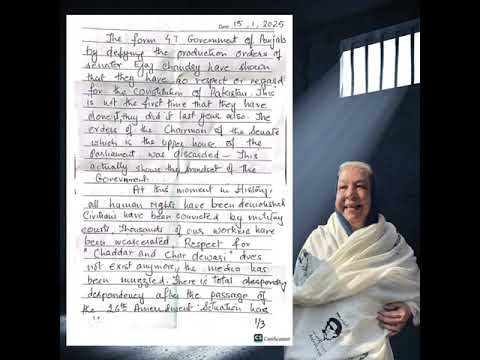 Date 15, 1, 2025
The form 47 Government of Punjab
by defying the production orders of
senator Ejaz Chaudry have shown
that they have no respect or regard
for the constitution of Pakistan. This
is not the first time that they have
done it, they did it last year also. The
orders of the Chairman of the Senate
which is the upper house of the
Parliament was discarded – This
actually shows the mindset of the
Government.
At this moment in History,
all human rights have been demolished
Civilians have been convicted by military
courts, Thousands of our workers have
been incarcerated. Respect for
"Chaddar and Char dewari" does
not exist anymore, the media has
been muzzled. There is total despondency
despondency after the passage of
the 26th Amendment. Situation has
1/3
CS CamScanner